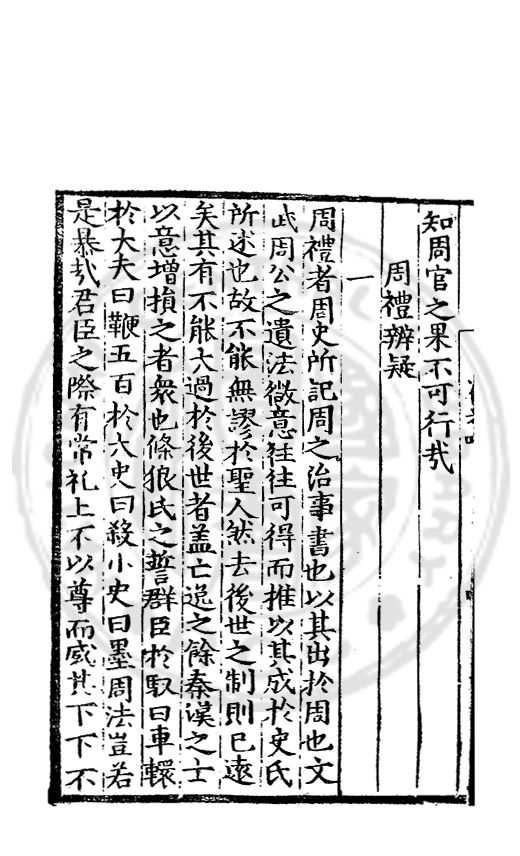 知周官之果不可行㦲
周禮辨疑
一
周禮者周史所記周之治事書也以其出於周也文
武周公之遺法微意往往可得而推以其成於史氏
所述也故不能無謬於聖人然去後世之制則已遠
矣其有不能大過於後世者盖亡逸之餘秦漢之士
以意增損之者衆也條狼氏之誓群臣於馭曰車轘
於大夫曰鞭五百於大史曰殺小史曰墨周法豈若
是暴㢤君臣之際有常礼上不以尊而威其下下不